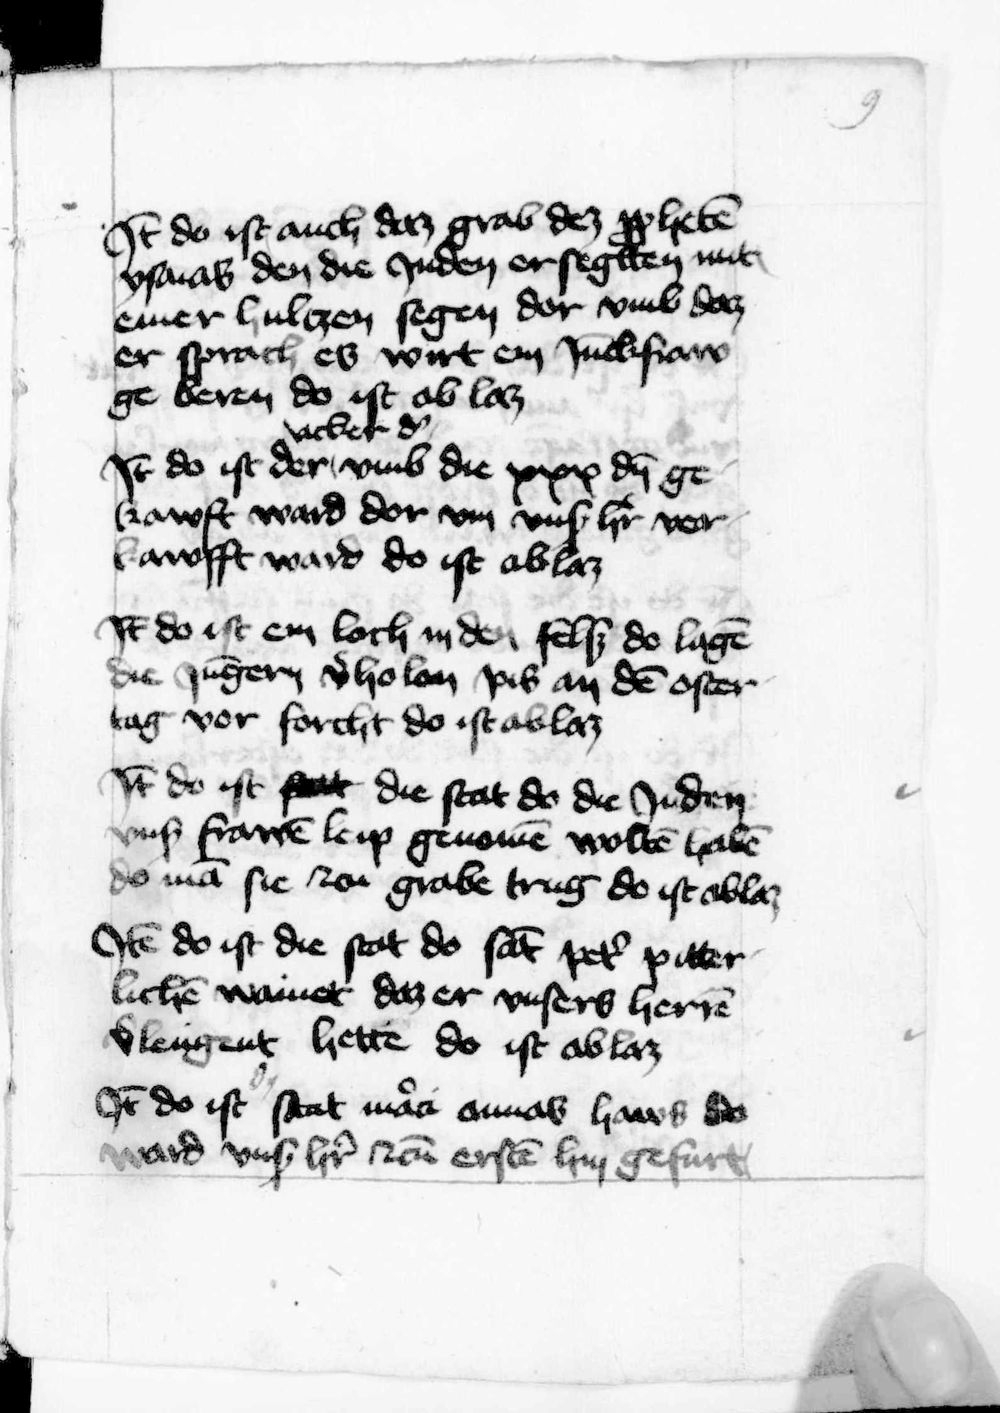 9
It̄ do ist auch daz grab dez ꝓphetē
ysaias den die Juden erseglten mit
einer hultzen segen dor vmb daz
er sprach es wirt ein Jūckfraw
ge beren do ist ab laz
acker d'
It̄ do ist der vmb die xxx dn̄ ge
kawft ward dor vm vnsʼ hʼr ver
kawfft ward do ist ablaz
It̄ do ist ein loch in den felsʼ do lagē
die Jūgern v̄holen pis an dē oster
tag vor forcht do ist ablaz
It̄ do ist die stat do die Juden
vnsʼ frawē leip genomē woltē habē
do mā sie zu grabe trug do ist ablaz
Itē do ist die stat do sāt petʼ pitter
lichē wainet daz er vnsers herrē
v̄leugent hettē do ist ablaz
It̄ do ist dy stat annas haws do
ward vnsʼ hʼr zcū erstē hin gefurt